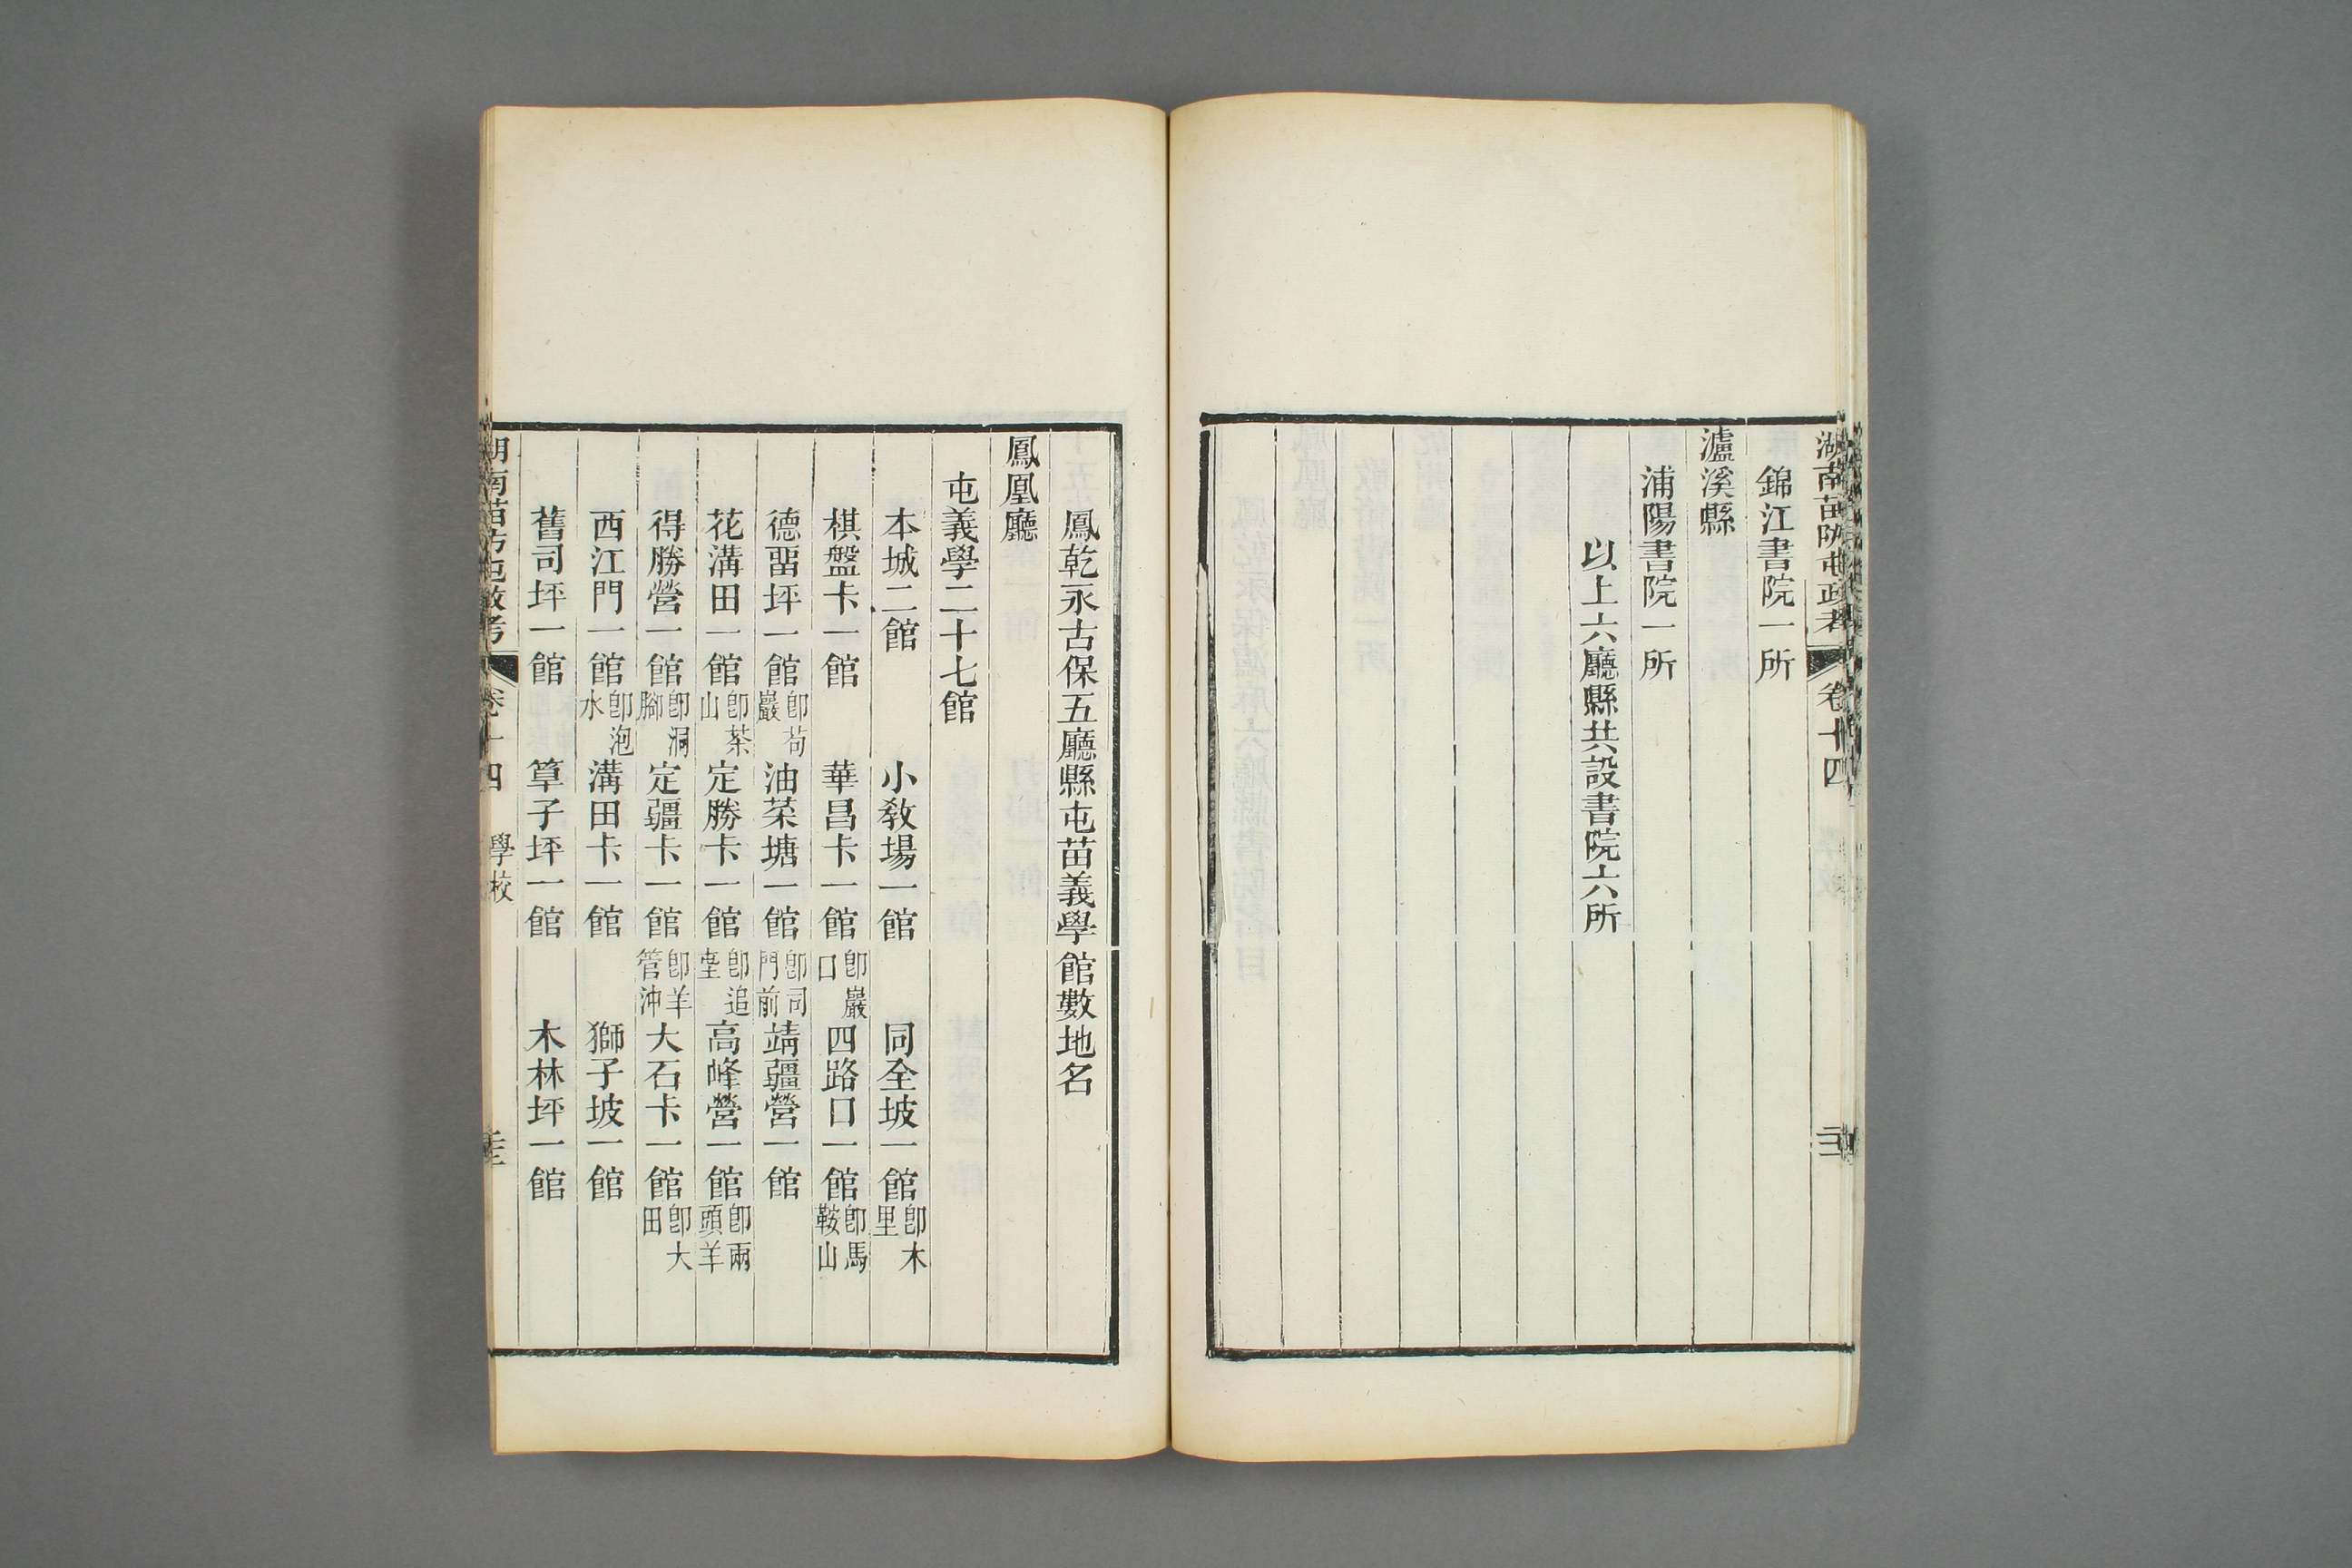 湖南苗防屯政考 卷十四
錦江書院一所
瀘溪縣
浦陽書院一所
以上六廳縣共設書院六所
鳳乾永古保五廳縣屯苗義學館數地名
鳳凰廳
屯義學二十七館
本城二館 小敎場一館 同全坡一館卽木里
棋盤卡一館 華昌卡一館卽巖口 四路口一館卽馬鞍山
德畱坪一館卽苟巖 油菜塘一館卽司門前 靖疆營一館
花溝田一館卽茶山 定勝卡一館卽追 高峰營一館卽兩頭羊
得勝營一館卽洞腳 定疆卡一館卽羊管沖 大石卡一館卽大田
西江門一館卽泡水 溝田卡一館 獅子坡一館
舊司坪一館 筸子坪一館 木林坪一館
湖南苗防屯政考 卷十四 學校